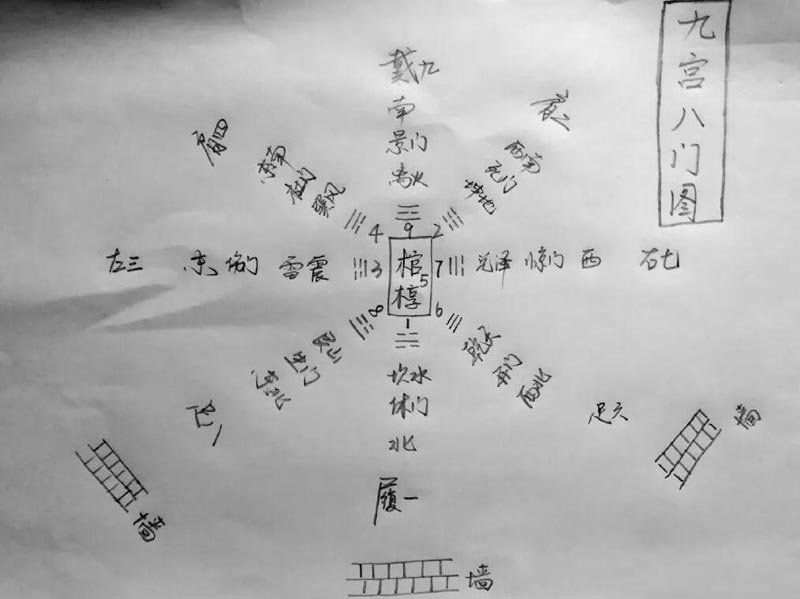 九宫八门图
戴九
南
景门
离火
9
肩二
西南
死门
坤地
2
肩四
东南
杜门
巽风
4
左三 东 伤门 雷震 3
棺
5
椁
7 兑泽 惊门 西 右七
8
生门
东北
1
坎水
休门
北
履一
6
乾天
开门
西北
足六
墙
墙
墙